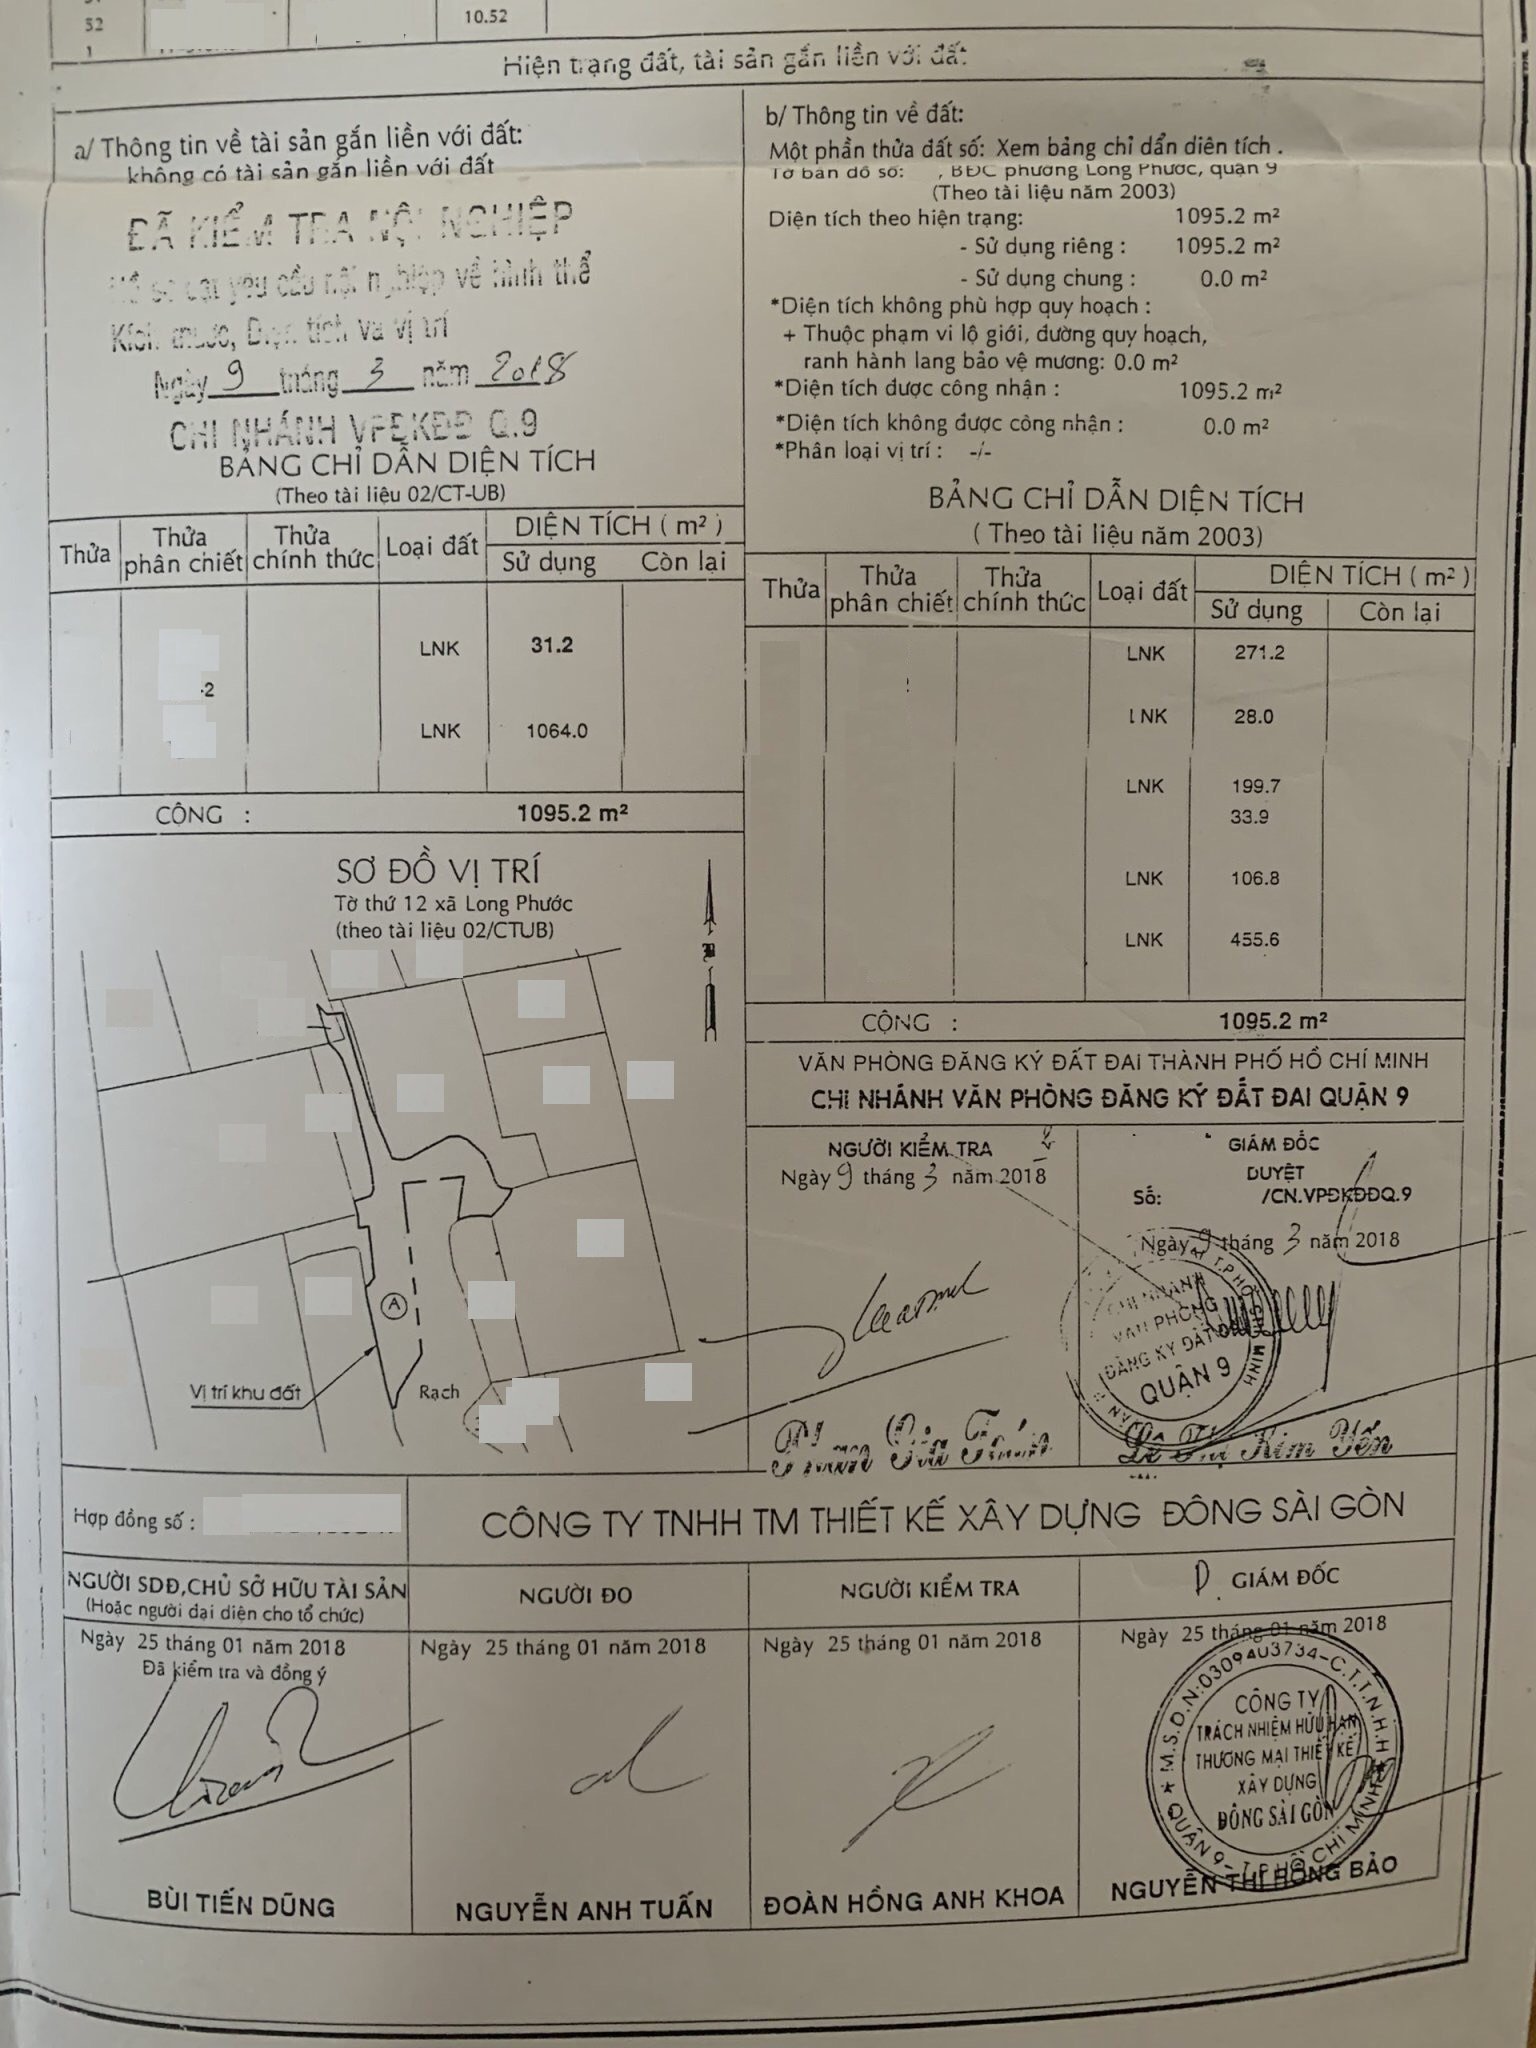 52
10.52
1
Hiện trạng đất, tài sản gắn liền với đất
a/ Thông tin về tài sản gắn liền với đất:
không có tài sản gắn liền với đất
ĐÃ KIỂM TRA NỘI NGHIỆP
Hồ sơ đạt yêu cầu nội nghiệp về hình thể
Kích thước, Diện tích và vị trí
Ngày 9 tháng 3 năm 2018
CHI NHÁNH VPĐKĐĐ Q.9
BẢNG CHỈ DẪN DIỆN TÍCH
(Theo tài liệu 02/CT-UB)
Thửa
Thửa phân chiết
Thửa chính thức
Loại đất
DIỆN TÍCH ( m² )
Sử dụng
Còn lại
LNK 31.2
-2
LNK 1064.0
CỘNG : 1095.2 m²
SƠ ĐỒ VỊ TRÍ
Tờ thứ 12 xã Long Phước
(theo tài liệu 02/CTUB)
A
Vị trí khu đất
Rạch
b/ Thông tin về đất:
Một phần thửa đất số: Xem bảng chỉ dẩn diện tích .
Tờ bản đồ số: , BĐC phường Long Phước, quận 9
(Theo tài liệu năm 2003)
Diện tích theo hiện trạng: 1095.2 m²
- Sử dụng riêng : 1095.2 m²
- Sử dụng chung : 0.0 m²
*Diện tích không phù hợp quy hoạch :
+ Thuộc phạm vi lộ giới, đường quy hoạch,
ranh hành lang bảo vệ mương: 0.0 m²
*Diện tích được công nhận : 1095.2 m²
*Diện tích không được công nhận : 0.0 m²
*Phân loại vị trí : -/-
BẢNG CHỈ DẪN DIỆN TÍCH
( Theo tài liệu năm 2003)
Thửa
Thửa phân chiết
Thửa chính thức
Loại đất
DIỆN TÍCH ( m² )
Sử dụng
Còn lại
LNK 271.2
LNK 28.0
LNK 199.7
33.9
LNK 106.8
LNK 455.6
CỘNG : 1095.2 m²
VĂN PHÒNG ĐĂNG KÝ ĐẤT ĐAI THÀNH PHỐ HỒ CHÍ MINH
CHI NHÁNH VĂN PHÒNG ĐĂNG KÝ ĐẤT ĐAI QUẬN 9
NGƯỜI KIỂM TRA
Ngày 9 tháng 3 năm 2018
GIÁM ĐỐC
DUYỆT
Số: /CN.VPĐKĐĐQ.9
Ngày 9 tháng 3 năm 2018
CHI NHÁNH
VĂN PHÒNG
ĐĂNG KÝ ĐẤT ĐAI
QUẬN 9
Phan Gia Toán
Lê Thị Kim Yến
Hợp đồng số :
CÔNG TY TNHH TM THIẾT KẾ XÂY DỰNG ĐÔNG SÀI GÒN
NGƯỜI SDĐ,CHỦ SỞ HỮU TÀI SẢN
(Hoặc người đại diện cho tổ chức)
Ngày 25 tháng 01 năm 2018
Đã kiểm tra và đồng ý
BÙI TIẾN DŨNG
NGƯỜI ĐO
Ngày 25 tháng 01 năm 2018
NGUYỄN ANH TUẤN
NGƯỜI KIỂM TRA
Ngày 25 tháng 01 năm 2018
ĐOÀN HỒNG ANH KHOA
P. GIÁM ĐỐC
Ngày 25 tháng 01 năm 2018
M.S.D.N:0309403734-C.T.T.N.H.H
CÔNG TY
TRÁCH NHIỆM HỮU HẠN
THƯƠNG MẠI THIẾT KẾ
XÂY DỰNG
ĐÔNG SÀI GÒN
QUẬN 9 - T.P HỒ CHÍ MINH
NGUYỄN THỊ HỒNG BẢO